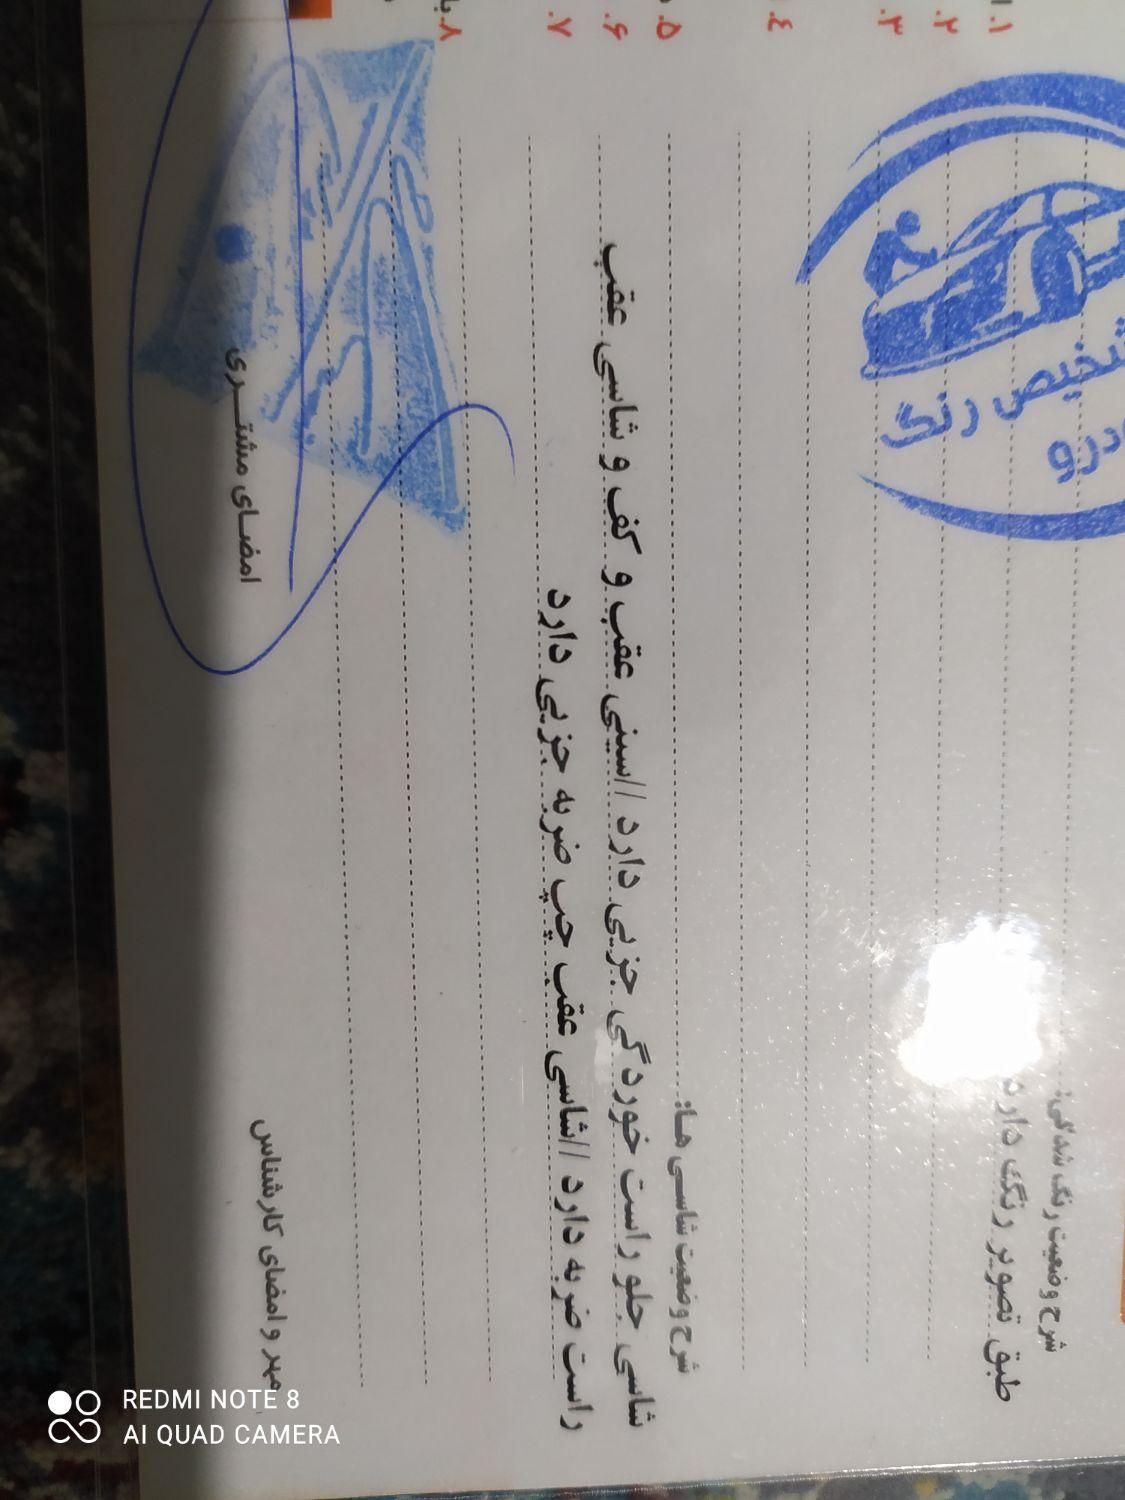 شرح وضعیت رنگ شدگی:
طبق تصویر رنگ دارد
شرح وضعیت شاسی ها:
شاسی جلو راست خوردگی جزیی دارد //سینی عقب و کف و شاسی عقب
راست ضربه دارد //شاسی عقب چپ ضربه جزیی دارد
مهر و امضای کارشناس
امضای مشتری
تشخیص رنگ
.۱
.۲
.۳
.۴
.۵
.۶
.۷
.۸
REDMI NOTE 8
AI QUAD CAMERA